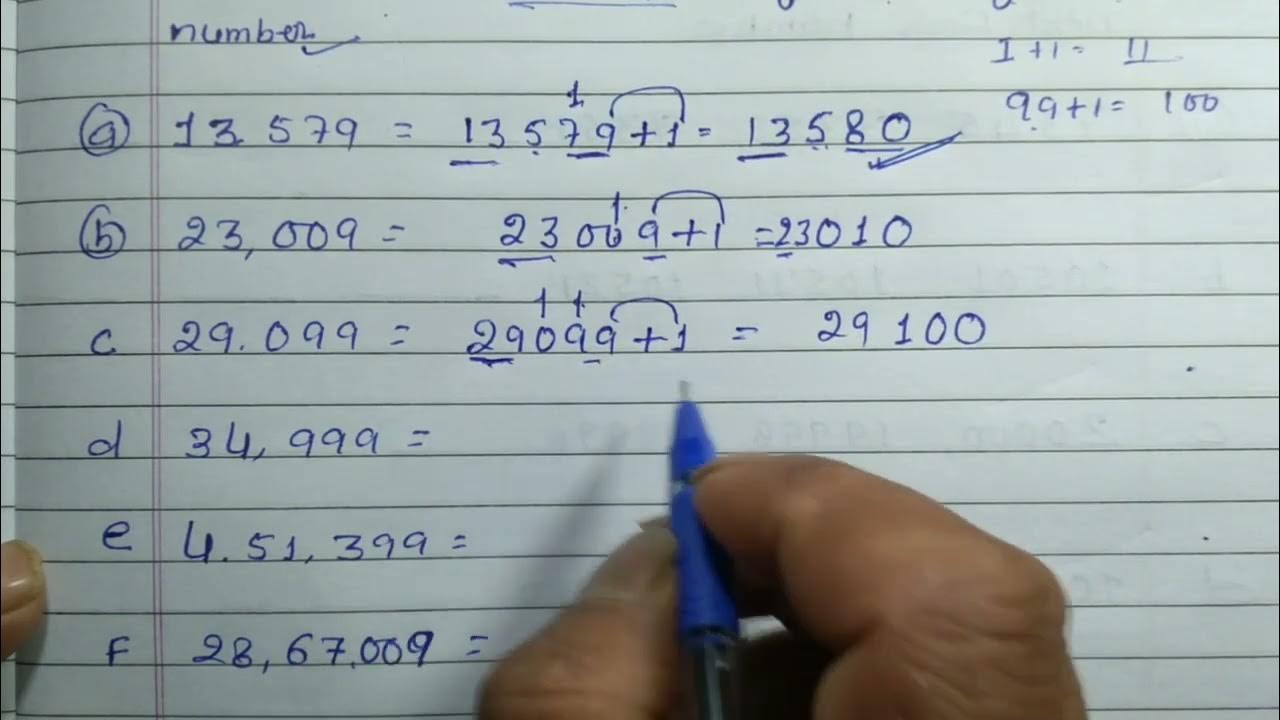 number
1+1= 11
99+1= 100
a 13.579 = 13579+1= 13580
b 23,009 = 23009+1 =23010
c 29.099 = 29099+1 = 29100
d 34,999 =
e 4.51,399 =
F 28,67.009 =